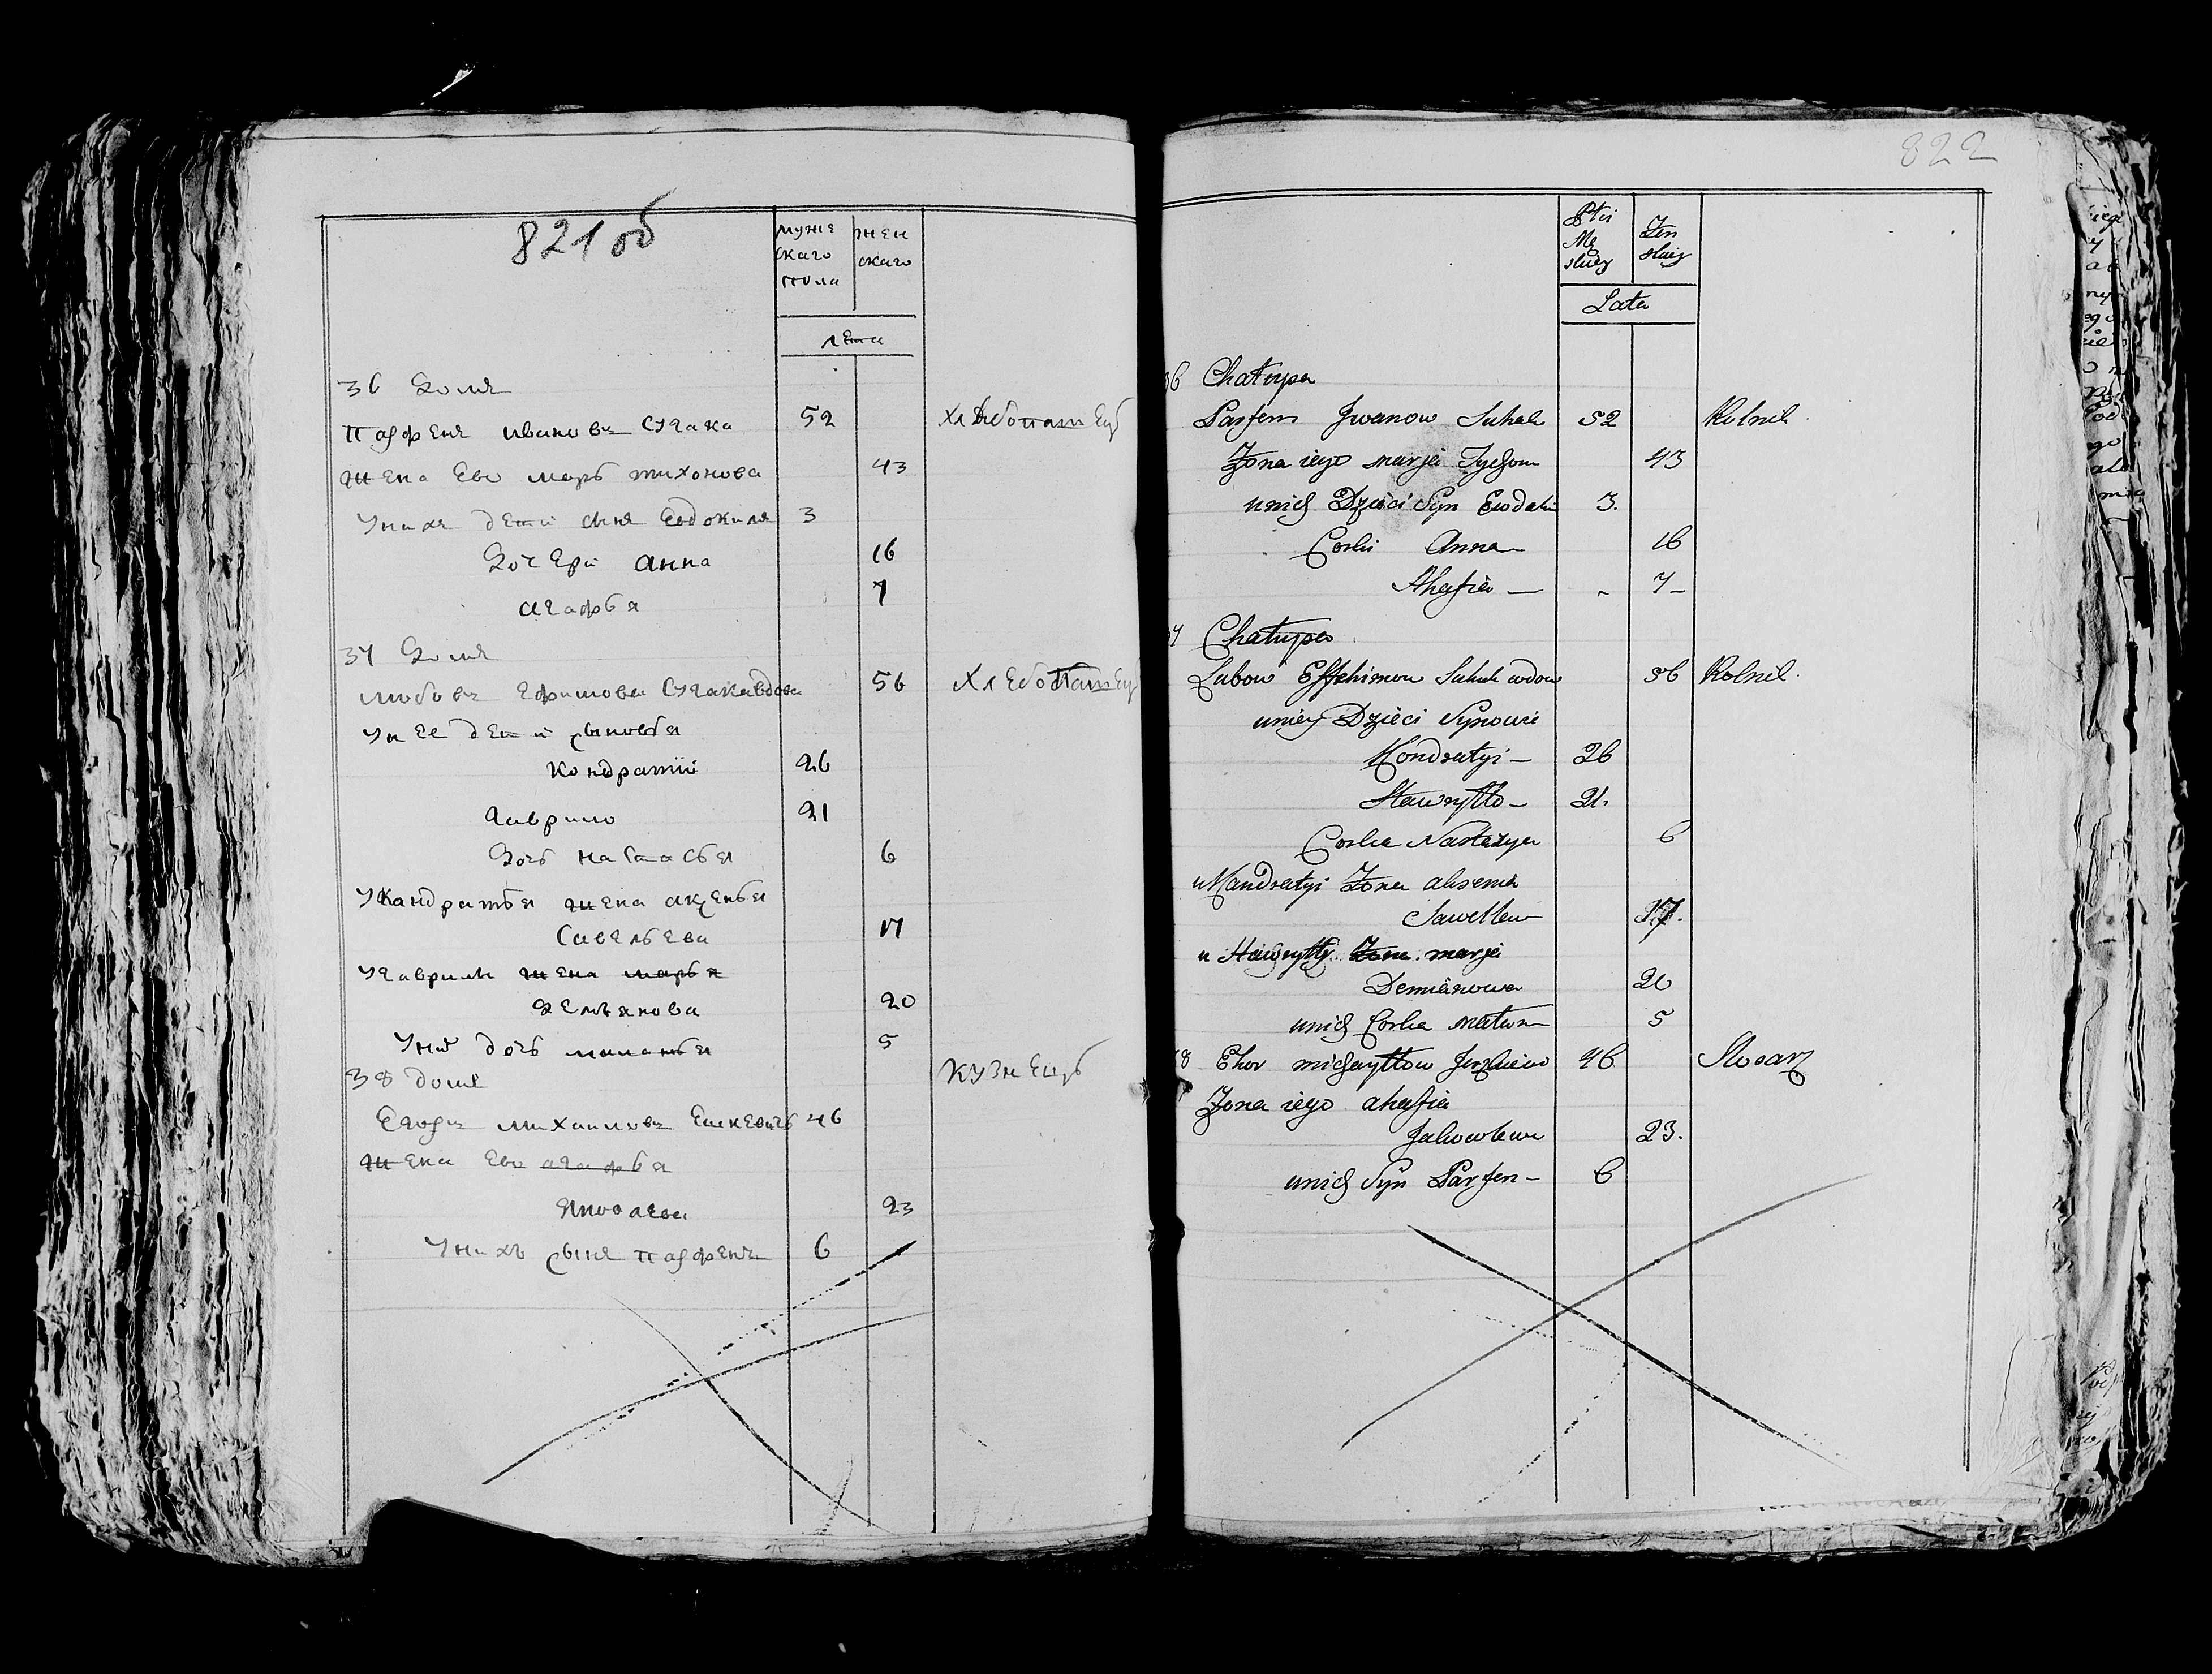 821 об
муже
скаго
пола
жен
скаго
лета
36 Домъ
Парфенъ Ивановъ Сугака 52 хлебопашецъ
жена Ево марь тихонова 43
У нихъ дети сынъ Евдокимъ 3
Дочери анна 16
агафья 7
37 Домъ
любовъ Ефимова Сугака вдова 56 Хлебопашецъ
У нее дети сыновья
Кондратий 26
гаврило 21
Дочь настасья 6
У Кандратья жена аксенья
Савельева 17
У гаврилы жена марья
Демьянова 20
У них дочь маланья 5
38 домъ кузнецъ
Егоръ михаиловъ 46
жена Ево агафья
Яковлева 23
У нихъ сынъ парфенъ 6
822
Płci
Mę
skiey
Żen
skiey
Lata
36 Chałupa
Parfem Jwanow Suhak 52 Rolnik
Żona iego marja Tychon 43
u nich Dzieci Syn Ewdakim 3.
Corki Anna 16
Ahafia — 7 –
37 Chałupa
Lubow Effehimow Suhak wdow 56 Rolnik.
u niey Dzieci Synowie
Kondratyi – 26
Hawryłło – 21.
Corka Nastazya 6
u Kandratyi Żona aksenia
Sawellew 17.
u Hawryłły Żona marja
Demianowa 20
u nich Corka 5
38 Ehor michayłłow 46 Slosarz
Żona iego ahafia
Jakowlewa 23.
u nich Syn Parfen – 6